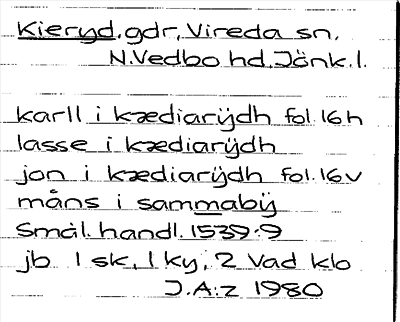 Kieryd, gdr, Vireda sn,
N. Vedbo hd, Jönk. l.
karll i kædiarÿdh fol. 16 h
lasse i kædiarÿdh
jon i kædiarÿdh fol. 16 v
måns i sammabÿ
Smål. handl. 1539:9
jb 1 sk, 1 ky, 2 Vad klo
J.A:z 1980